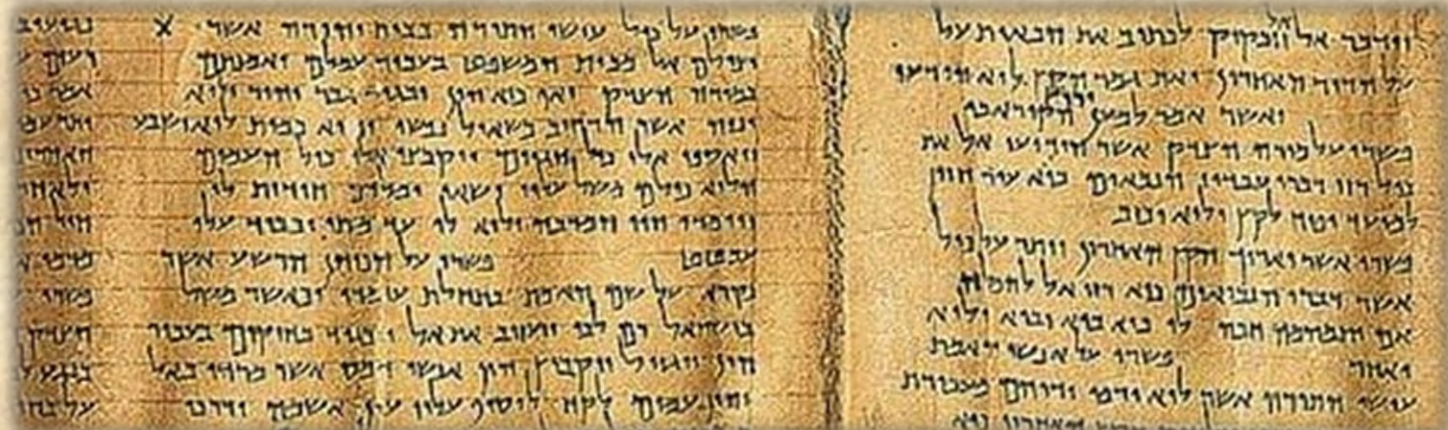 וידבר אל אל חבקוק לכתוב את הבאות על
על הדור האחרון ואת גמר הקץ לוא הודעו
ואשר אמר למען ירוץ הקורא בו
פשרו על מורה הצדק אשר הודיעו אל את
כול רזי דברי עבדיו הנבאים כיא עוד חזון
למועד יפיח לקץ ולוא יכזב
פשרו אשר יארוך הקץ האחרון ויתר על כול
אשר דברו הנביאים כיא רזי אל להפלה
אם יתמהמה חכה לו כיא בוא יבוא ולוא
יאחר פשרו על אנשי האמת
עושי התורה אשר לוא ירפו ידיהם מעבודת
האחרון כיא
פשרו על כול עושי התורה בבית יהודה אשר
יצילם אל מבית המשפט בעבור עמלם ואמנתם
במורה הצדק ואף כיא הון יבגוד גבר יהיר ולוא
ינוה אשר הרחיב כשאול נפשו והוא כמות לוא ישבע
ויאספו אלו כול הגוים ויקבצו אלו כול העמים
הלוא כולם משל עליו ישאו ומליצי חידות לו
ויומרו הוי המרבה ולוא לו עד מתי יכביד עלו
עבטט פשרו על הכוהן הרשע אשר
נקרא על שם האמת בתחלת עומדו וכאשר משל
בישראל רם לבו ויעזוב את אל ויבגוד בחוקים בעבור
הון ויגזול ויקבוץ הון אנשי חמס אשר מרדו באל
והון עמים לקח לוסיף עליו עון אשמה ודרכי